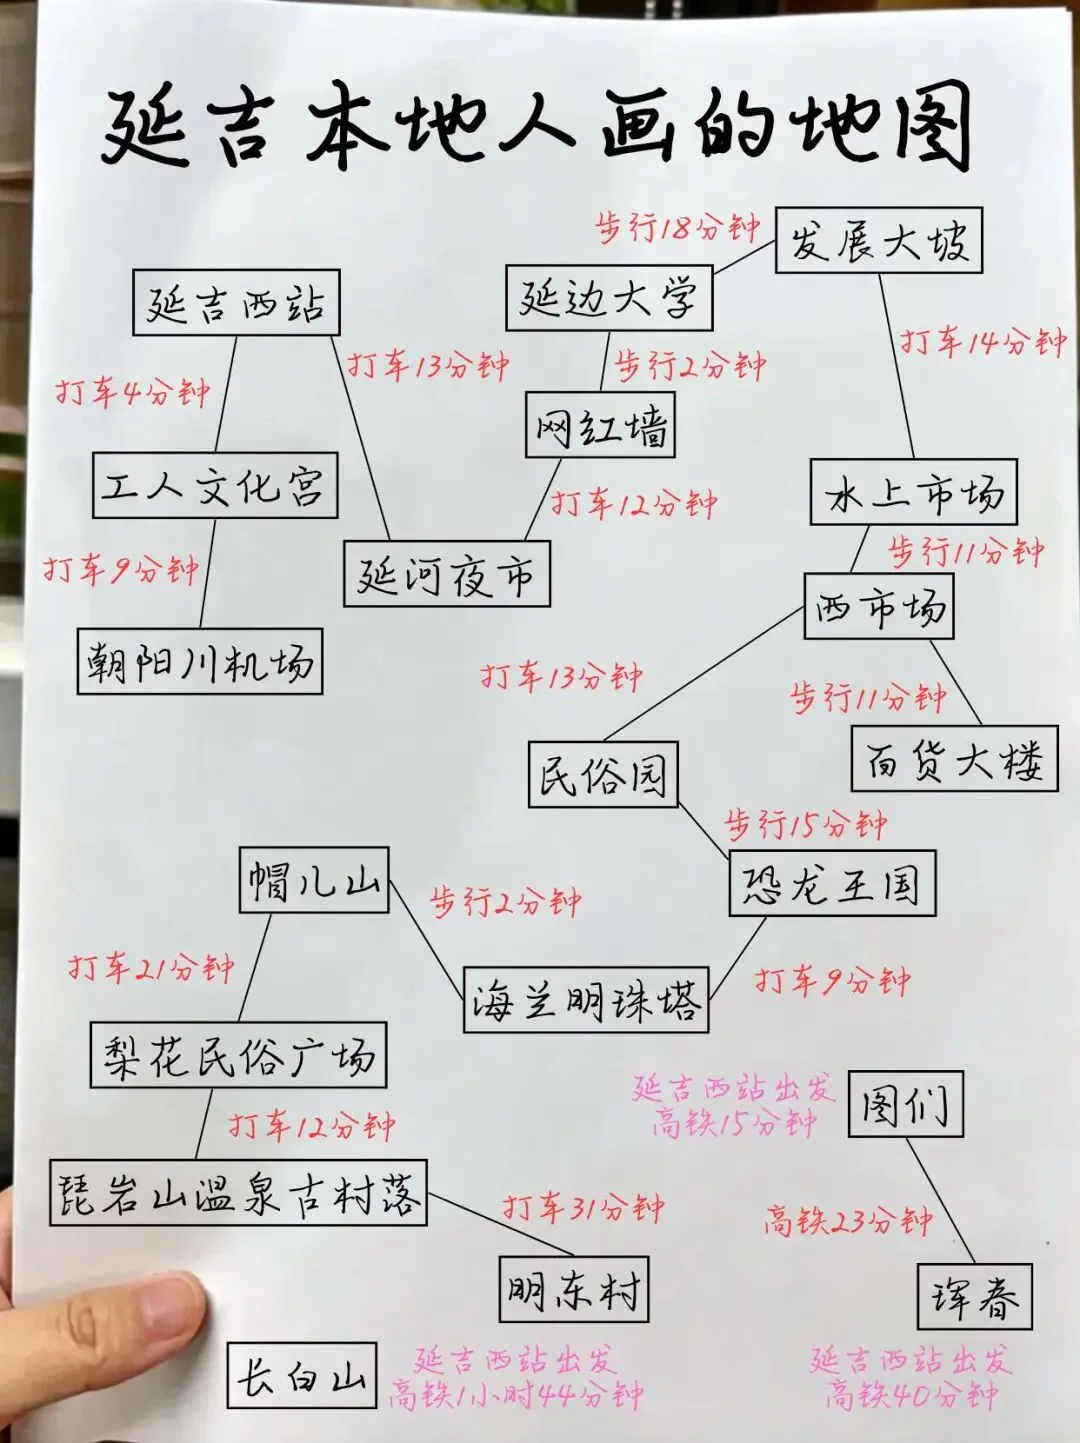 延吉本地人画的地图
步行18分钟
发展大坡
延吉西站
延边大学
打车4分钟
打车13分钟
步行2分钟
打车14分钟
网红墙
工人文化宫
打车12分钟
水上市场
打车9分钟
延河夜市
步行11分钟
西市场
朝阳川机场
打车13分钟
步行11分钟
民俗园
百货大楼
步行15分钟
帽儿山
步行2分钟
恐龙王国
打车21分钟
海兰明珠塔
打车9分钟
梨花民俗广场
延吉西站出发
高铁15分钟
图们
打车12分钟
琵岩山温泉古村落
打车31分钟
高铁23分钟
明东村
珲春
长白山
延吉西站出发
高铁1小时44分钟
延吉西站出发
高铁40分钟